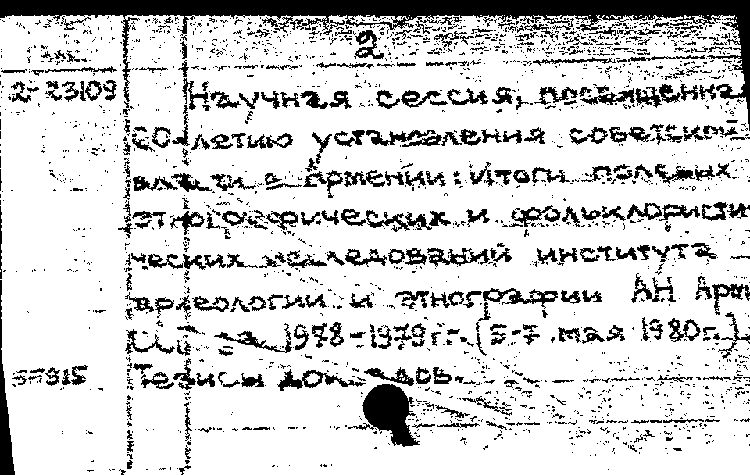 2
2-23109 Научная сессия, посвященная
60-летию установления советской
власти в Армении: Итоги полевых
этнографических и фольклористи-
ческих исследований института
археологии и этнографии АН Арм
ССР за 1978-1979 гг. (5-7 мая 1980г.).
Тезисы докладов.